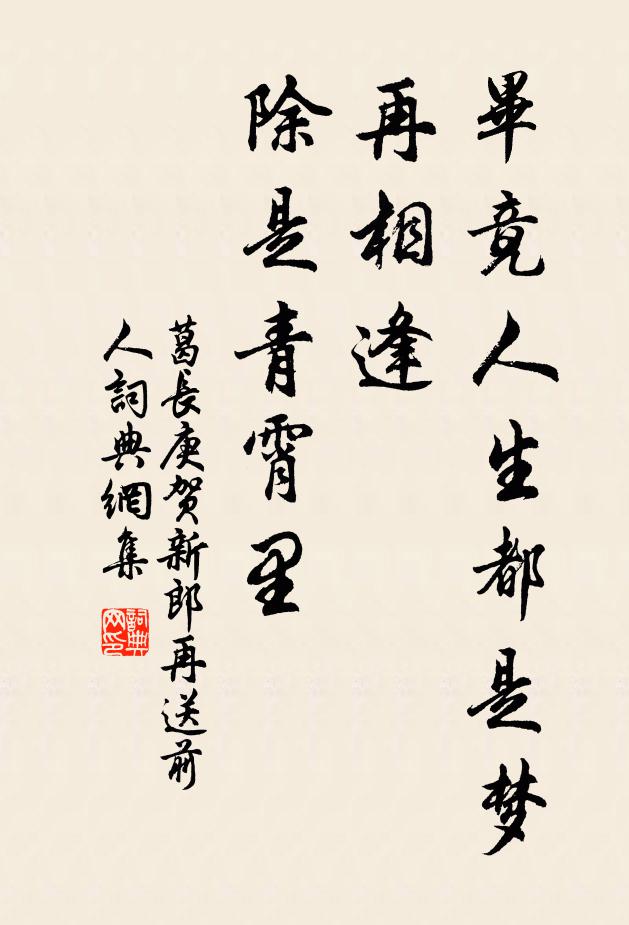 畢竟人生都是梦
再相逢
除是青霄里
葛長庚贺新郎再送前
人詞典網集
詞典网印